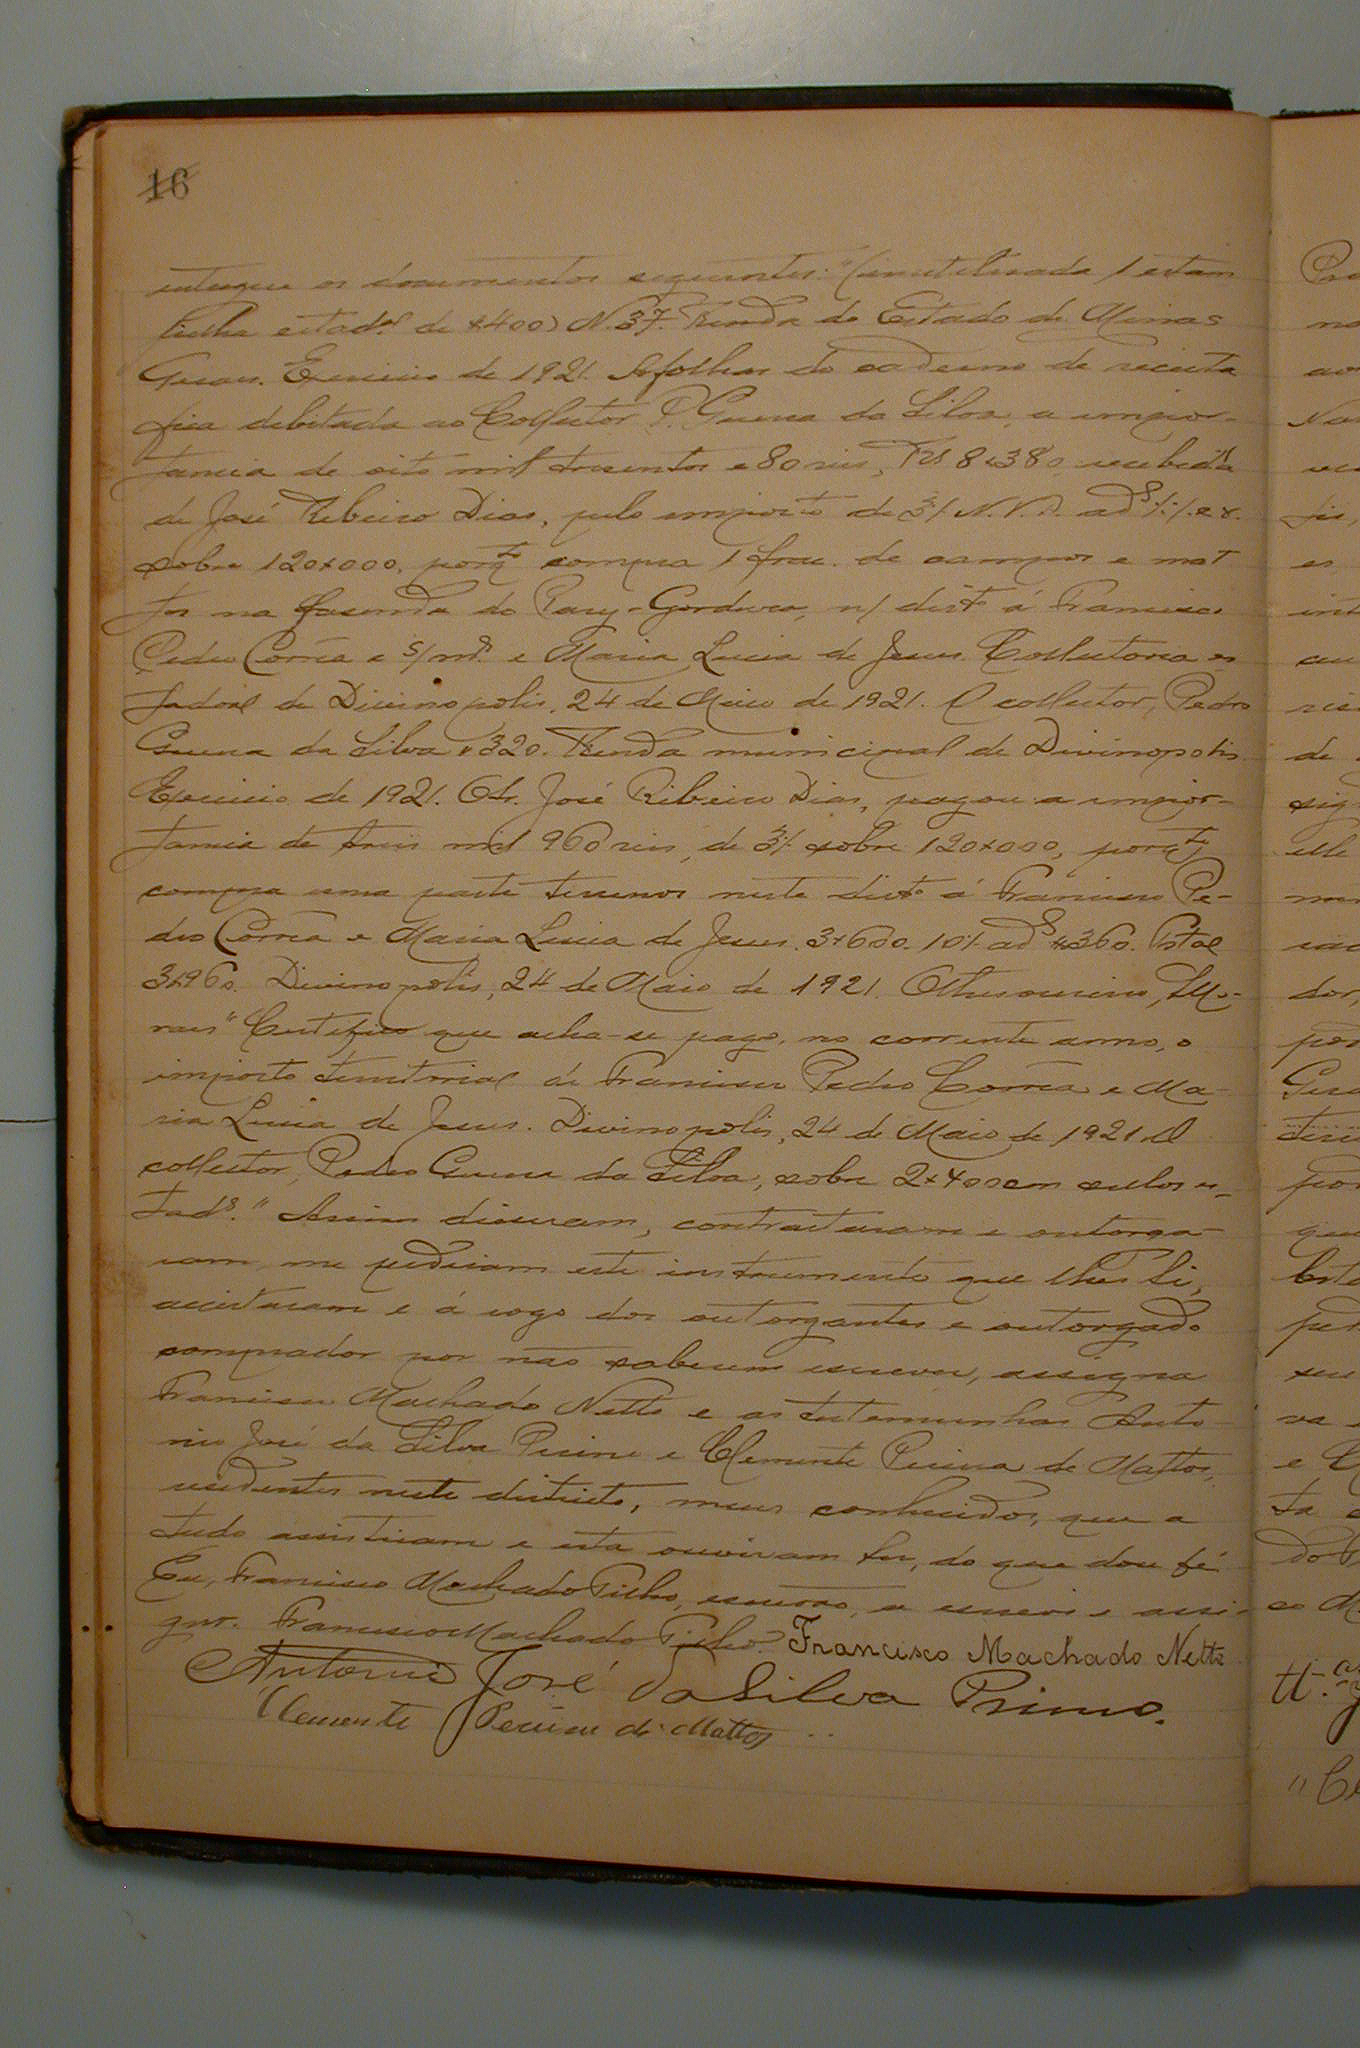 16
entregue os documentos seguintes: "(inutilisada 1 estam
pilha estadal de $400) N. 37. Renda do Estado de Minas
Geraes. Exercicio de 1921. A folhas do caderno de receita
fica debitada ao Collector P. Guerra da Silva, a impor-
tancia de oito mil tresentos e 80 reis, Rs 8$380 recebida
de José Ribeiro Dias, pelo imposto de
sobre 120$000, porqto compra 1 frac. de campos e mat
tos na fasenda do Pary-Gordura, n/ disto á Francisco
Pedro Corrêa e s/mer e Maria Lucia de Jesus. Collectoria es
tadoal de Divinopolis, 24 de Maio de 1921. O collector, Pedro
Guerra da Silva $320. Renda municipal de Divinopolis
Exercicio de 1921. O Sr. José Ribeiro Dias, pagou a impor-
tancia de tres mil 960 reis, de 3% sobre 120$000, porqto
compra uma parte terrenos neste disto á Francisco Pe-
dro Corrêa e Maria Lucia de Jesus. 3$600. 10% ads $360. Total
3$960. Divinopolis, 24 de Maio de 1921. O thesoureiro, Mo-
raes" Certifico que acha-se pago, no corrente anno, o
imposto territorial de Francisco Pedro Corrêa e Ma-
ria Lucia de Jesus. Divinopolis, 24 de Maio de 1921. O
collector, Pedro Guerra da Silva, sobre 2$400 em sellos es-
tads." Assim disseram, contractaram e outorga-
ram, me pediram este instrumento que lhes li,
acceitaram e á rogo dos outorgantes e outorgado
comprador por não saberem escrever, assigna
Francisco Machado Netto e as testemunhas Anto-
nio José da Silva Primo e Clemente Pereira de Mattos,
residentes neste districto, meus conhecidos, que a
tudo assistiram e esta ouviram ler, do que dou fé
Eu, Francisco Machado Filho, escrivão, a escrevi e assi-
gno. Francisco Machado Filho. Francisco Machado Netto
Antonio José da Silva Primo.
Clemente Pereira de Mattos